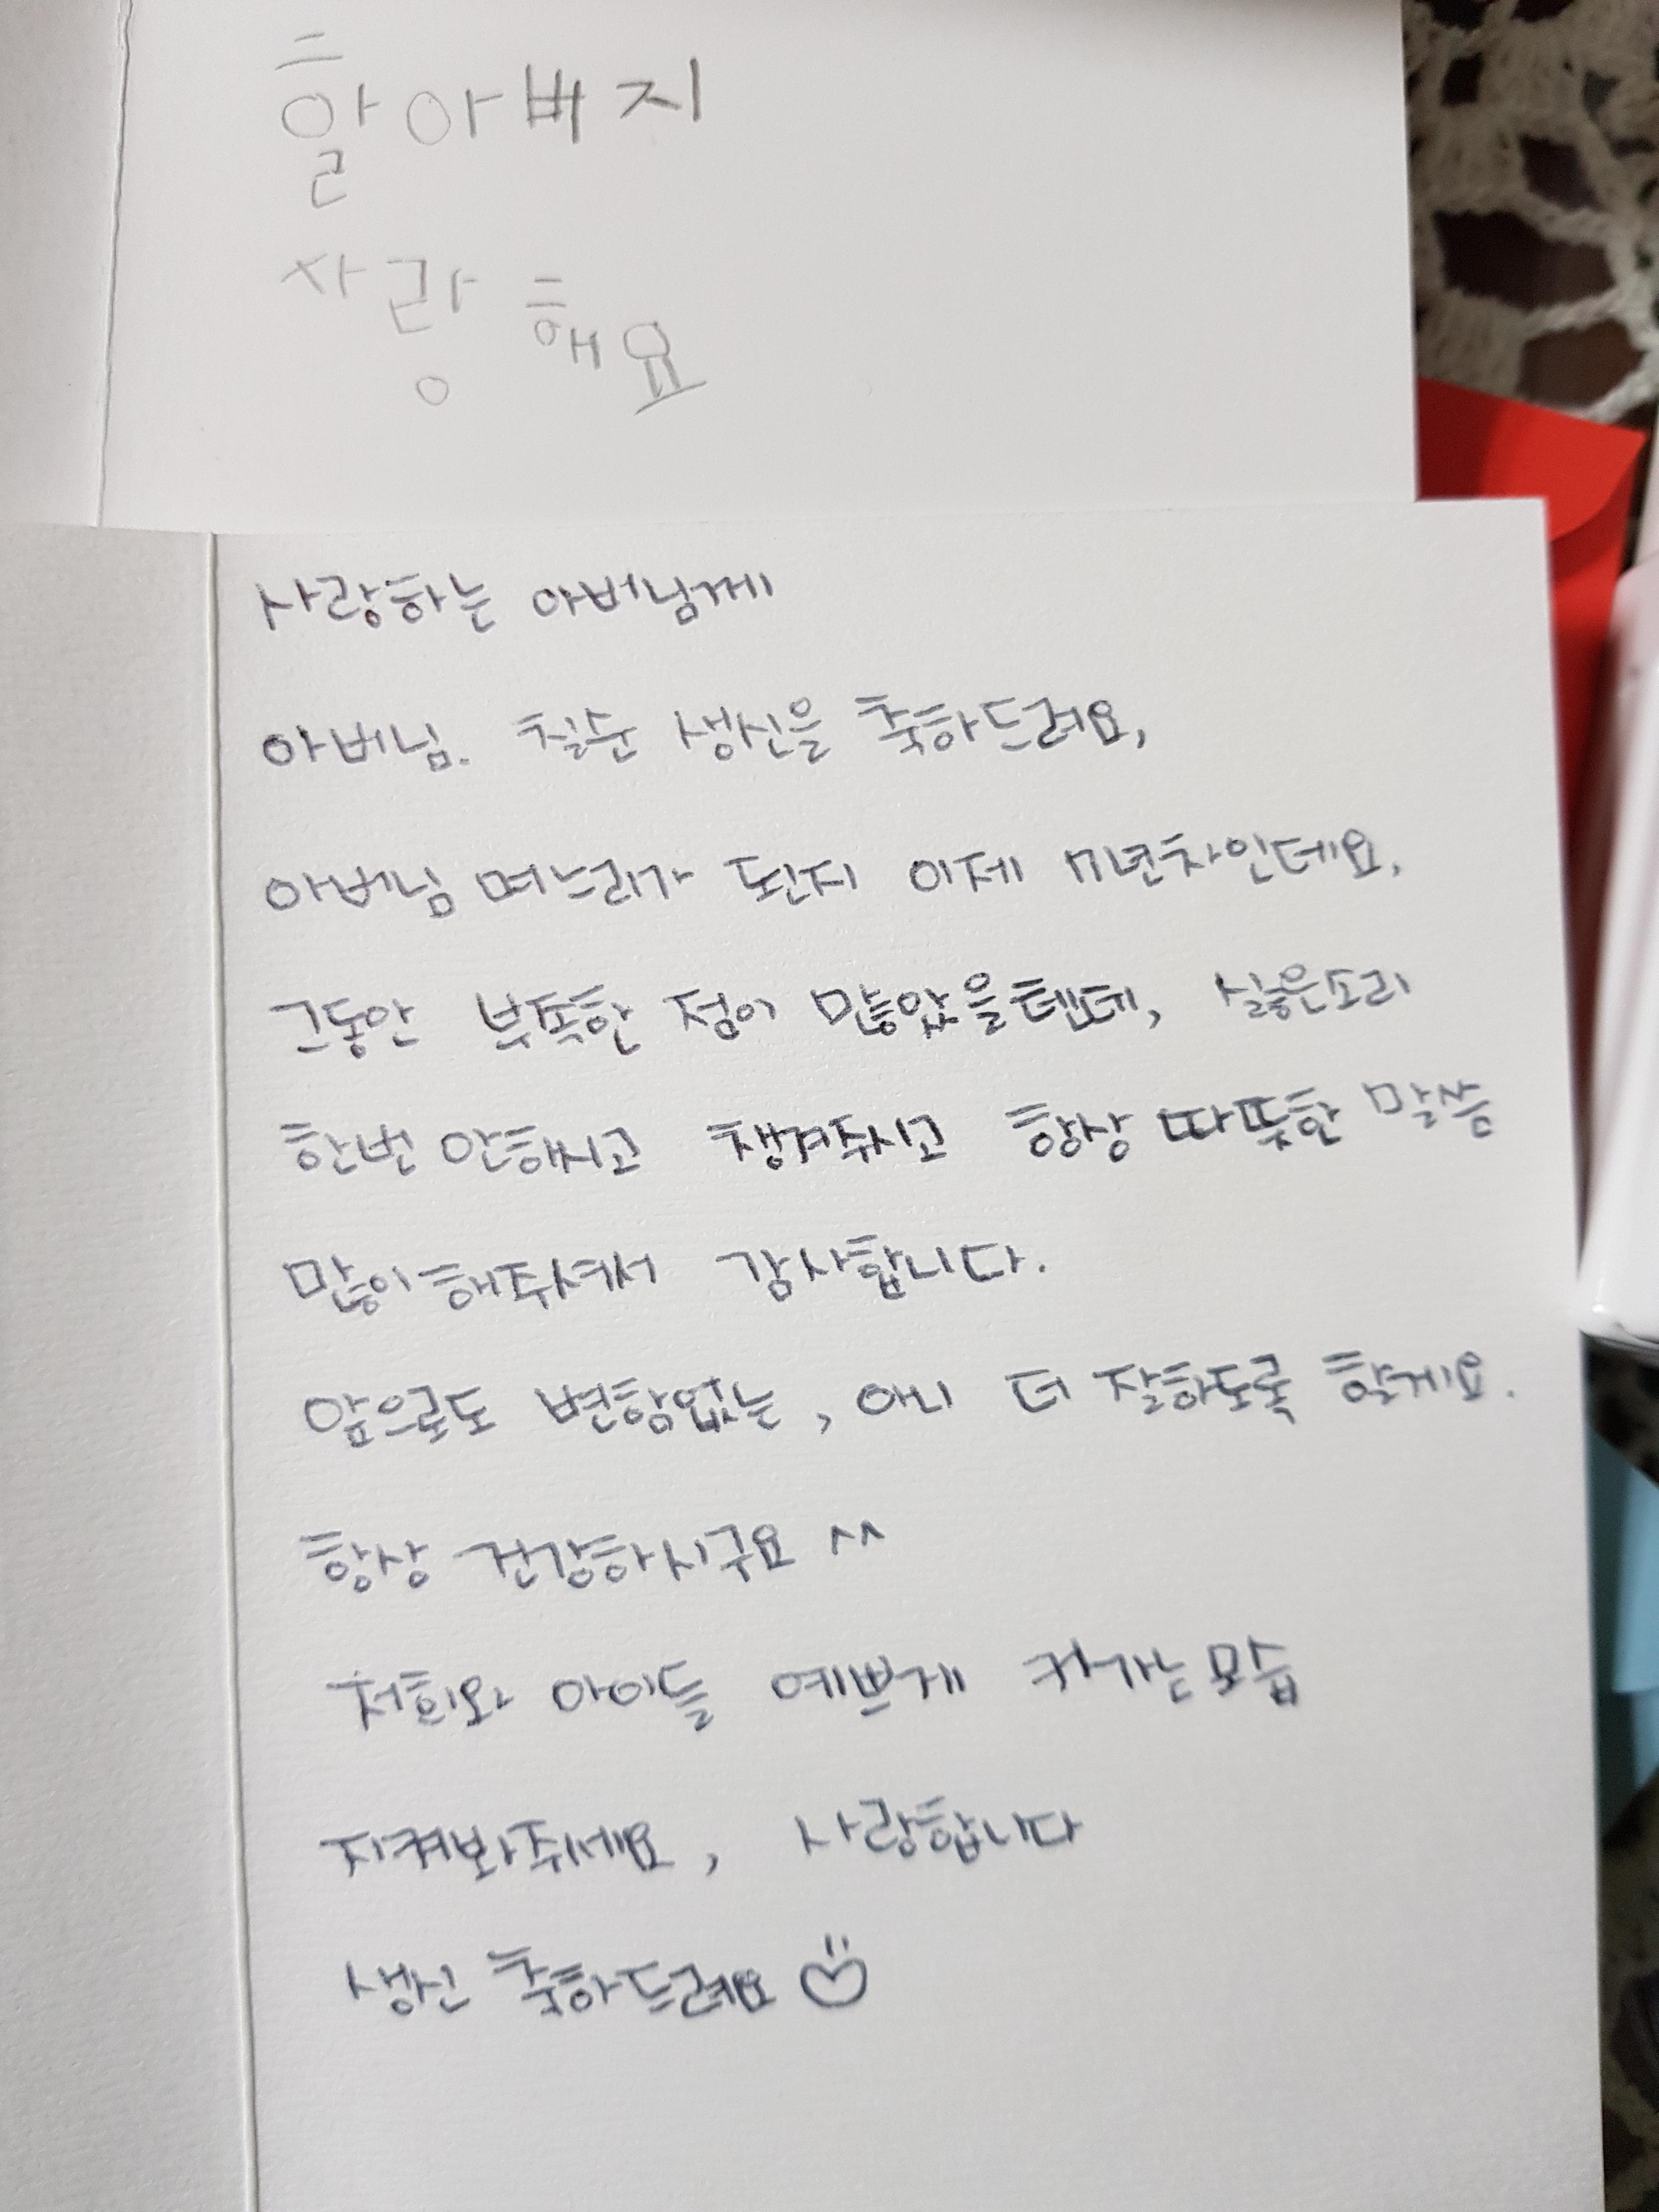 할아버지
사랑해요
사랑하는 아버님께
아버님. 칠순 생신을 축하드려요,
아버님 며느리가 된지 이제 7년차인데요.
그동안 부족한 점이 많았을텐데, 싫은소리
한번 안하시고 챙겨주시고 항상 따뜻한 말씀
많이해주셔서 감사합니다.
앞으로도 변함없는, 아니 더 잘하도록 할게요.
항상 건강하시구요 ^^
저희와 아이들 예쁘게 커가는모습
지켜봐주세요, 사랑합니다
생신 축하드려요